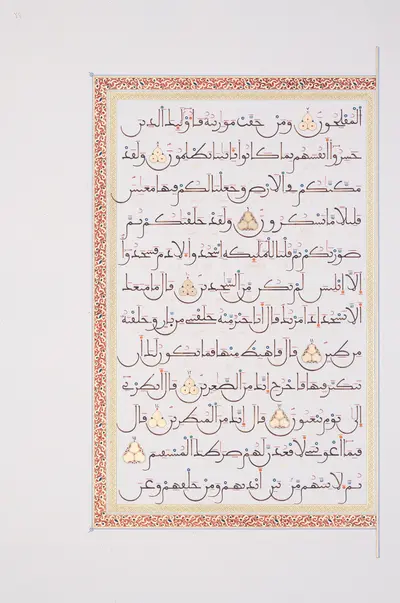 المفلحون ومن خفت موازينه فأوليك الذين
خسروا أنفسهم بما كانوا بآياتنا يظلمون ولقد
مكنكم في الأرض وجعلنا لكم فيها معيش
قليلا ما تشكرون ولقد خلقنكم ثم
صورنكم ثم قلنا للمليكة اسجدوا لأدم فسجدوا
إلا إبليس لم يكن من السجدين قال ما منعك
ألا تسجد إذ أمرتك قال أنا خير منه خلقتني من نار وخلقته
من طين قال فاهبط منها فما يكون لك أن
تتكبر فيها فاخرج إنك من الصغرين قال أنظرني
إلى يوم يبعثون قال إنك من المنظرين قال
فبما أغويتني لأقعدن لهم صرطك المستقيم
ثم لأتينهم من بين أيديهم ومن خلفهم وعن